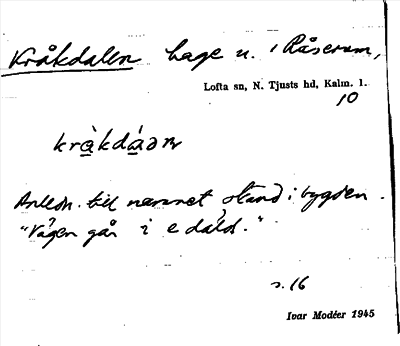 Kråkdalen hage u. i Råserum,
Lofta sn, N. Tjusts hd, Kalm. l.
10
Anledn. till namnet okänd i bygden.
"Vägen går i e dåld."
s. 16
Ivar Modéer 1945